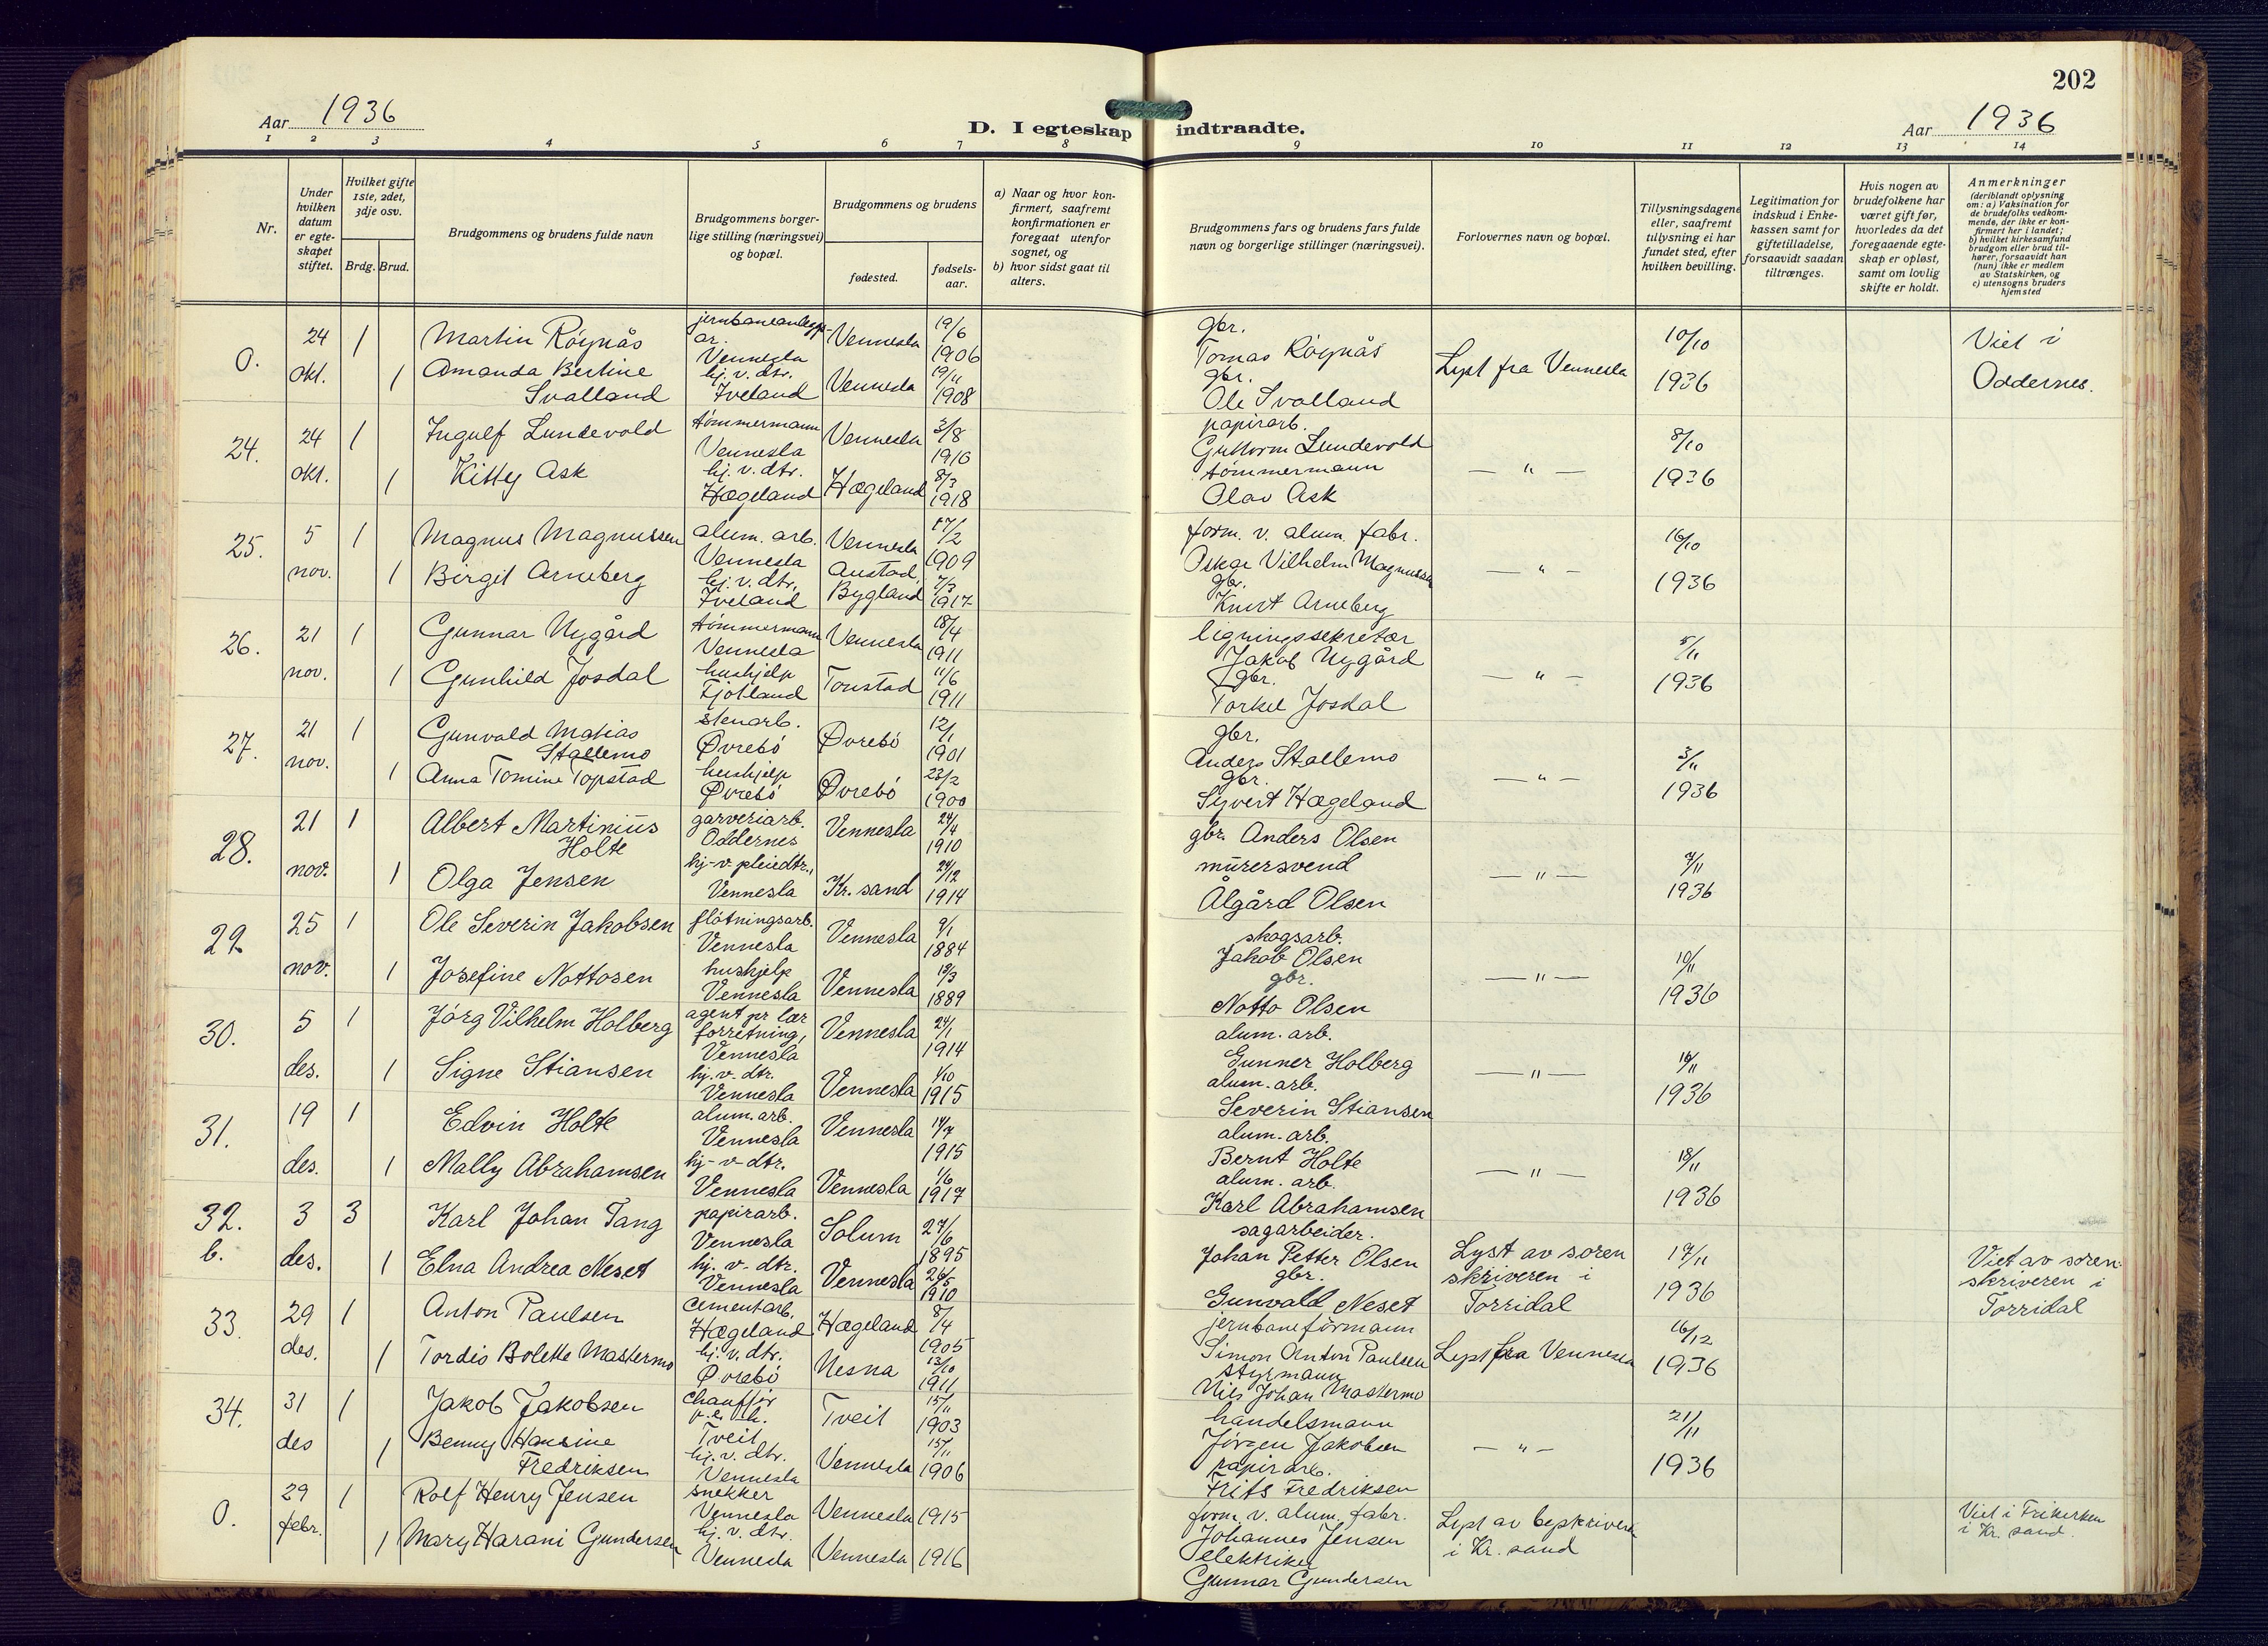 202
Aar 1936
D. I egteskap indtraadte.
Aar 1936
1 2 3 4 5 6 7 8 9 10 11 12 13 14
Nr.
Under hvilken datum er egteskapet stiftet.
Hvilket gifte 1ste, 2det, 3dje osv.
Brdg. Brud.
Brudgommens og brudens fulde navn
Brudgommens borgerlige stilling (næringsvei) og bopæl.
Brudgommens og brudens
fødested.
fødselsaar.
a) Naar og hvor konfirmert, saafremt konfirmationen er foregaat utenfor sognet, og
b) hvor sidst gaat til alters.
Brudgommens fars og brudens fars fulde navn og borgerlige stillinger (næringsvei).
Forlovernes navn og bopæl.
Tillysningsdagene eller, saafremt tillysning ei har fundet sted, efter hvilken bevilling.
Legitimation for indskud i Enkekassen samt for giftetilladelse, forsaavidt saadan tiltrænges.
Hvis nogen av brudefolkene har været gift før, hvorledes da det foregaaende egteskap er opløst, samt om lovlig skifte er holdt.
Anmerkninger
(deriblandt oplysning om: a) Vaksination for de brudefolks vedkommende, der ikke er konfirmert her i landet; b) hvilket kirkesamfund brudgom eller brud tilhører, forsaavidt han (hun) ikke er medlem av Statskirken, og c) utensogns bruders hjemsted
0. 24 okt. 1 Martin Røynås Vennesla Vennesla 19/6 1906 gbr. Tomas Røynås Lyst fra Vennesla 10/10 1936 Viet i Oddernes.
1 Amanda Bertine Svalland hj. v. dtr. Iveland Vennesla 19/11 1908 gbr. Ole Svalland
24. 24 okt. 1 Ingulf Lundevold tømmermann Vennesla Vennesla 3/8 1910 papirarb. Guttorm Lundevold — " — 8/10 1936
1 Kitty Ask hj. v. dtr. Hægeland Hægeland 8/3 1918 tømmermann Olav Ask
25. 5 nov. 1 Magnus Magnussen alum. arb. Vennesla Vennesla 17/2 1909 form. v. alum. fabr. Oskar Vilhelm Magnussen — " — 16/10 1936
1 Birgit Arneberg hj. v. dtr. Iveland Austad, Bygland 7/3 1917 gbr. Knut Arneberg
26. 21 nov. 1 Gunnar Nygård tømmermann Vennesla Vennesla 18/4 1911 ligningssekretær Jakob Nygård — " — 5/11 1936
1 Gunhild Josdal hushjelp Fjotland Tonstad 11/6 1911 gbr. Torkel Josdal
27. 21 nov. 1 Gunvald Matias Stallemo stenarb. Øvrebö Øvrebö 12/1 1901 gbr. Anders Stallemo — " — 3/11 1936
1 Anna Tomine Topstad hushjelp Øvrebö Øvrebö 23/2 1900 gbr. Syvert Hægeland
28. 21 nov. 1 Albert Martinius Holte garveriarb. Oddernes Vennesla 24/4 1910 gbr. Anders Olsen — " — 7/11 1936
1 Olga Jensen hj-v-pleiedtr., Vennesla Kr. sand 24/12 1914 murersvend Ålgård Olsen
29. 25 nov. 1 Ole Severin Jakobsen fløtningsarb. Vennesla Vennesla 9/1 1884 skogsarb. Jakob Olsen — " — 10/11 1936
1 Josefine Nottosen hushjelp Vennesla Vennesla 13/3 1889 gbr. Notto Olsen
30. 5 des. 1 Jørg Vilhelm Holberg agent pr lær forretning, Vennesla Vennesla 24/1 1914 alum. arb. Gunner Holberg — " — 16/11 1936
1 Signe Stiansen hj. v. dtr. Vennesla Vennesla 1/10 1915 alum. arb. Severin Stiansen
31. 19 des. 1 Edvin Holte alum. arb. Vennesla Vennesla 14/7 1915 alum. arb. Bernt Holte — " — 18/11 1936
1 Mally Abrahamsen hj-v-dtr. Vennesla Vennesla 1/6 1917 alum. arb. Karl Abrahamsen
32. b. 3 des. 3 Karl Johan Tang papirarb. Vennesla Solum 27/6 1895 sagarbeider. Johan Petter Olsen Lyst av sorenskriveren i Torridal 17/11 1936 Viet av sorenskriveren i Torridal
1 Elna Andrea Neset hj. v. dtr. Vennesla Vennesla 26/5 1910 gbr. Gunvald Neset
33. 29 des. 1 Anton Paulsen cementarb. Hægeland Hægeland 8/4 1905 jernbaneformann Simon Anton Paulsen Lyst fra Vennesla 16/12 1936
1 Tordis Bolette Mastermo hj. v. dtr. Øvrebö Nesna 13/10 1911 styrmann Nils Johan Mastermo
34. 31 des 1 Jakob Jakobsen chauffør Tveit Tveit 15/11 1903 handelsmann Jørgen Jakobsen — " — 21/11 1936
1 Benny Hansine Fredriksen hj. v. dtr. Vennesla Vennesla 15/11 1906 papirarb. Frits Fredriksen
0. 29 febr. 1 Rolf Henry Jensen snekker Vennesla Vennesla 1915 form. v. alum. fabr. Johannes Jensen Lyst av byskriveren i Kr. sand Viet i Frikirken i Kr. sand.
1 Mary Harani Gundersen hj. v. dtr. Vennesla Vennesla 1916 elektriker Gunnar Gundersen